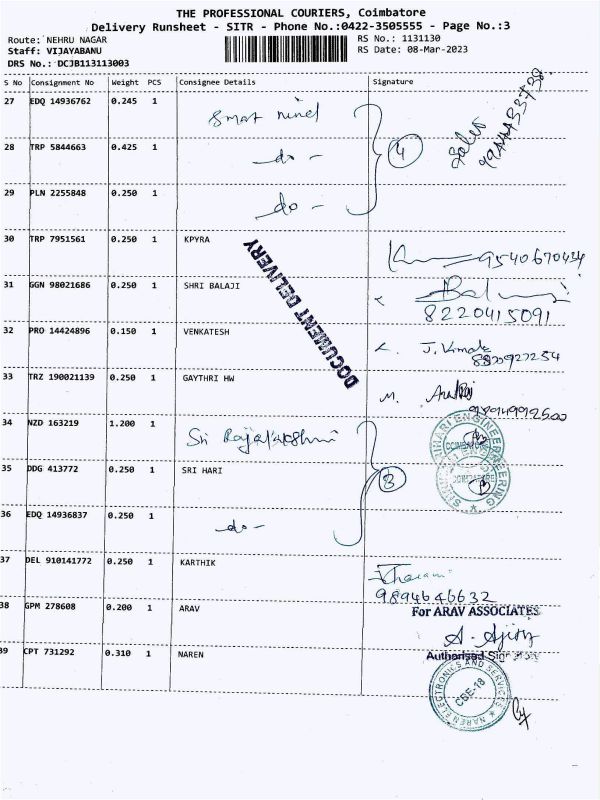 THE PROFESSIONAL COURIERS, Coimbatore
Delivery Runsheet - SITR - Phone No.:0422-3505555 - Page No.:3
Route: NEHRU NAGAR
RS No.: 1131130
Staff: VIJAYABANU
RS Date: 08-Mar-2023
DRS No.: DCJB113113003
S No Consignment No Weight PCS Consignee Details Signature
27 EDQ 14936762 0.245 1
28 TRP 5844663 0.425 1 -do-
4
29 PLN 2255848 0.250 1 -do-
30 TRP 7951561 0.250 1 KPYRA
9540670434
DOCUMENT DELIVERY
31 GGN 98021686 0.250 1 SHRI BALAJI
8220415091
32 PRO 14424896 0.150 1 VENKATESH
33 TRZ 190021139 0.250 1 GAYTHRI HW
M.
34 NZD 163219 1.200 1 Sri Rajalakshmi
35 DDG 413772 0.250 1 SRI HARI
3
36 EDQ 14936837 0.250 1 -do-
37 DEL 910141772 0.250 1 KARTHIK
9894646632
38 GPM 278608 0.200 1 ARAV
For ARAV ASSOCIATES
39 CPT 731292 0.310 1 NAREN
Authorised
NAREN ELECTRONICS AND SERVICES
CBE-18